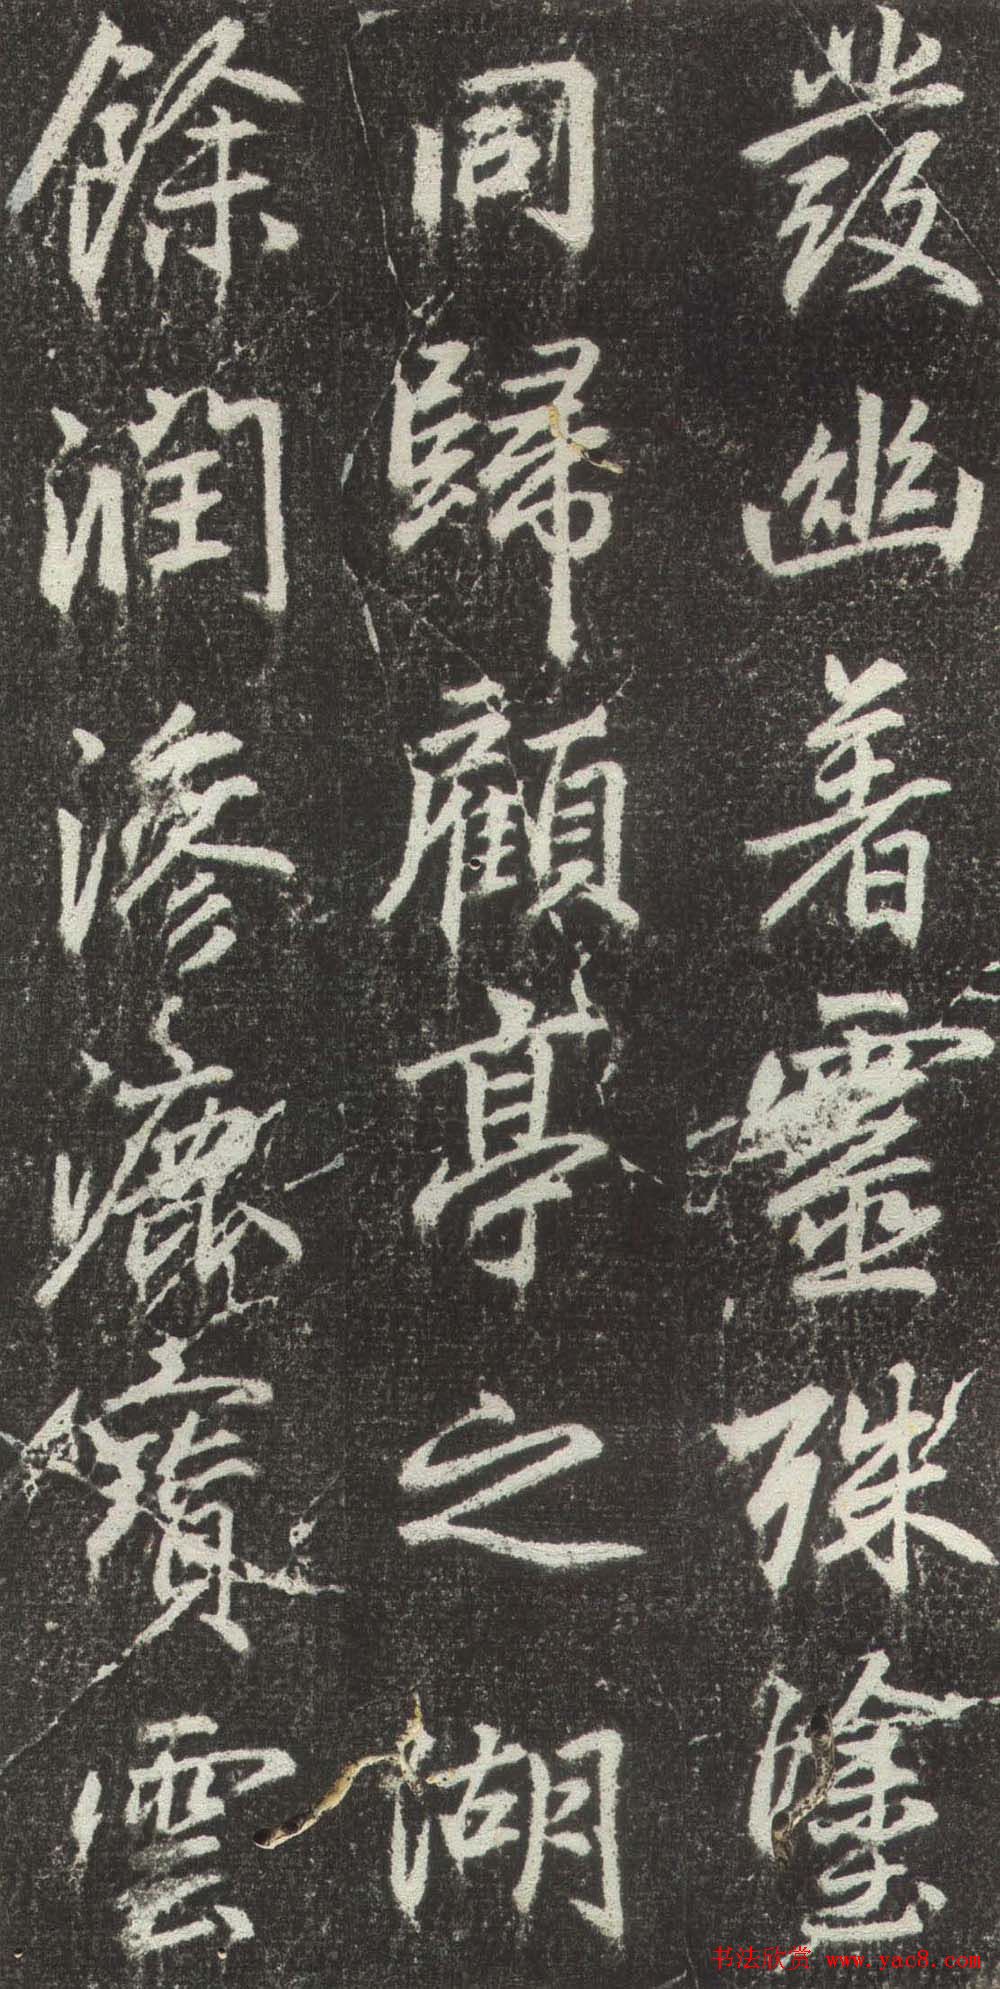 發幽着靈殊塗
同歸顧亭之湖
餘潤滲漉寶雲
书法欣赏 www.yac8.com